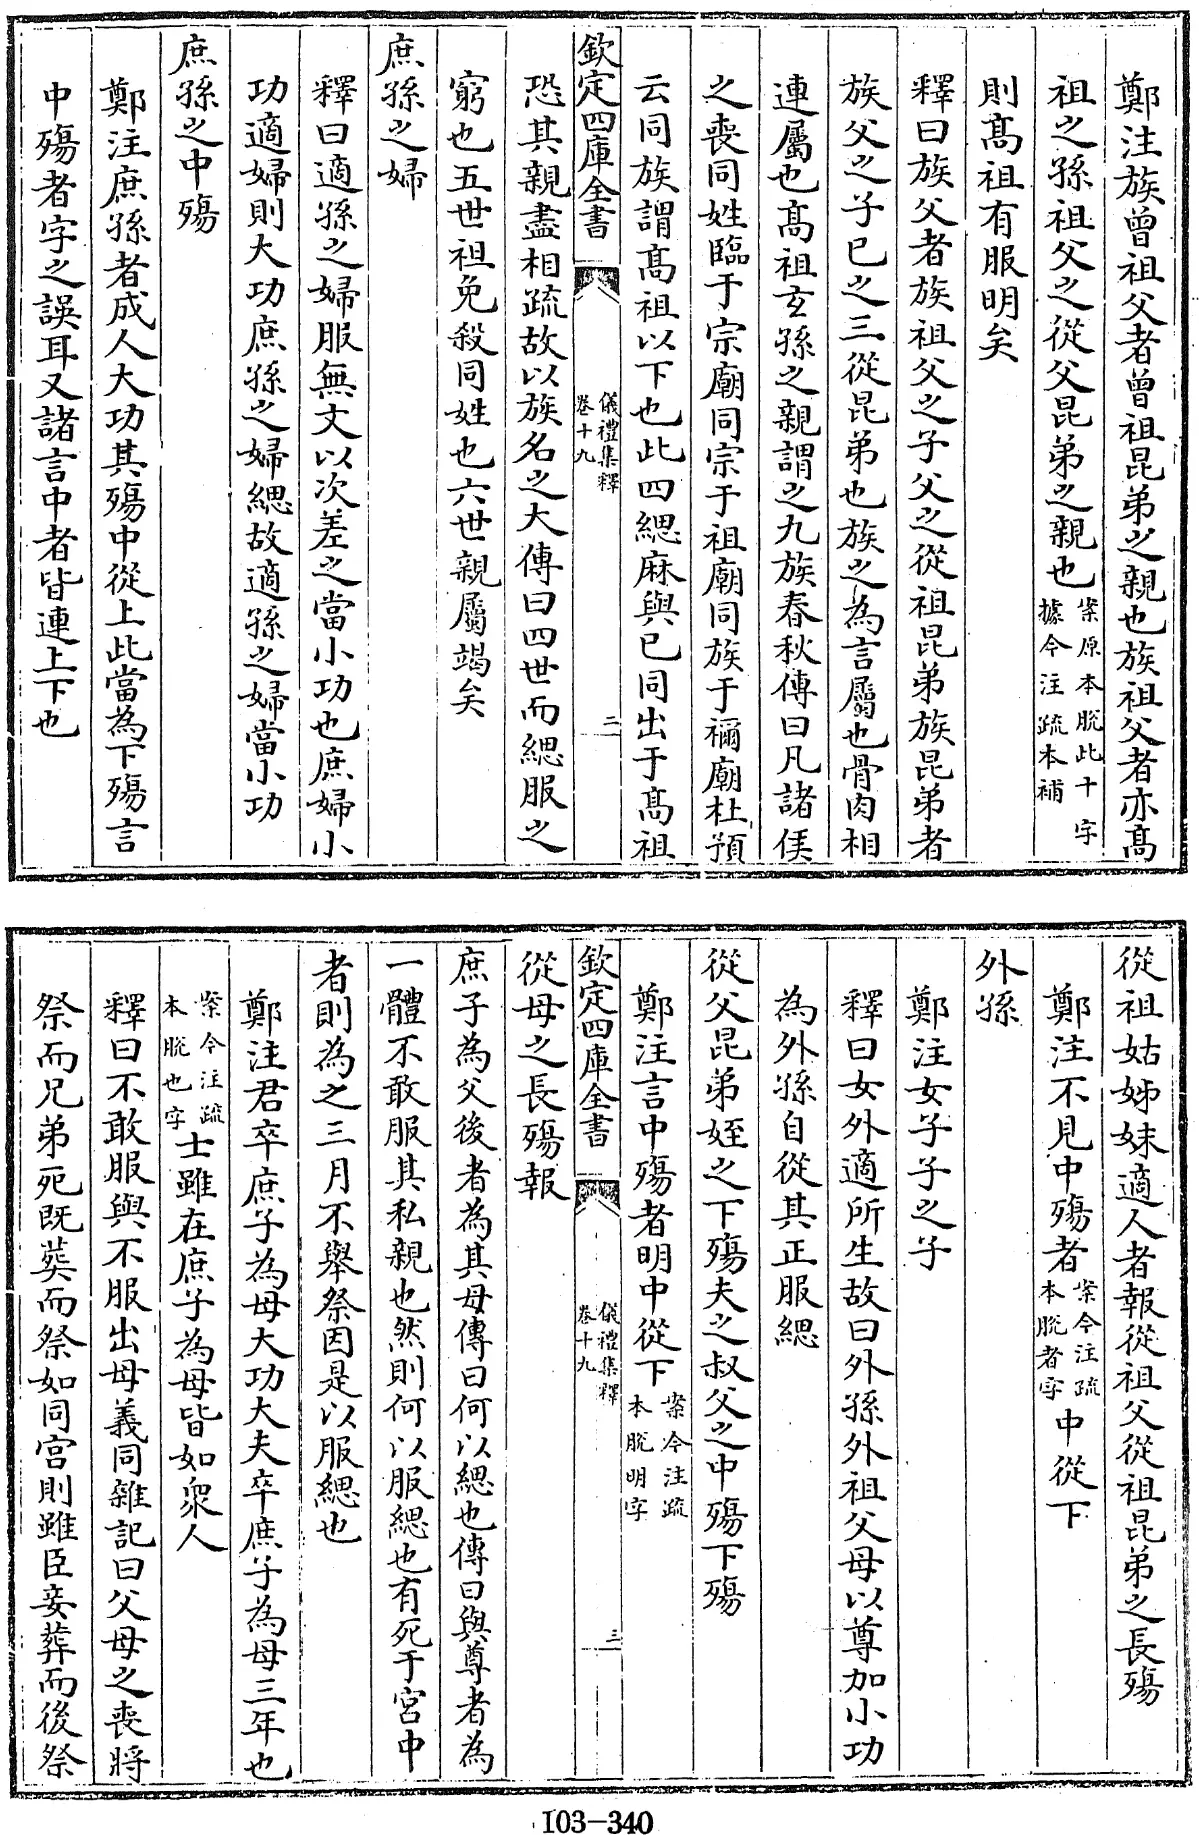 鄭注族曾祖父者曾祖昆弟之親也族祖父者亦髙
祖之孫祖父之從父昆弟之親也案原本脫此十字據今注疏本補
則髙祖有服明矣
釋曰族父者族祖父之子父之從祖昆弟族昆弟者
族父之子已之三從昆弟也族之為言屬也骨肉相
連屬也髙祖玄孫之親謂之九族春秋傳曰凡諸侯
之喪同姓臨于宗廟同宗于祖廟同族于禰廟杜預
云同族謂髙祖以下也此四緦麻與已同出于髙祖
欽定四庫全書
儀禮集釋
卷十九
二
恐其親盡相疏故以族名之大傳曰四世而緦服之
窮也五世祖免殺同姓也六世親屬竭矣
庶孫之婦
釋曰適孫之婦服無文以次差之當小功也庶婦小
功適婦則大功庶孫之婦緦故適孫之婦當小功
庶孫之中殤
鄭注庶孫者成人大功其殤中從上此當為下殤言
中殤者字之誤耳又諸言中者皆連上下也
從祖姑姊妹適人者報從祖父從祖昆弟之長殤
鄭注不見中殤者案今注疏本脫者字中從下
外孫
鄭注女子子之子
釋曰女外適所生故曰外孫外祖父母以尊加小功
為外孫自從其正服緦
從父昆弟姪之下殤夫之叔父之中殤下殤
鄭注言中殤者明中從下案今注疏本脫明字
欽定四庫全書
儀禮集釋
卷十九
三
從母之長殤報
庶子為父後者為其母傳曰何以緦也傳曰與尊者為
一體不敢服其私親也然則何以服緦也有死于宮中
者則為之三月不舉祭因是以服緦也
鄭注君卒庶子為母大功大夫卒庶子為母三年也
案今注疏本脫也字士雖在庶子為母皆如衆人
釋曰不敢服與不服出母義同雜記曰父母之喪將
祭而兄弟死既葬而祭如同宮則雖臣妾葬而後祭
103-340